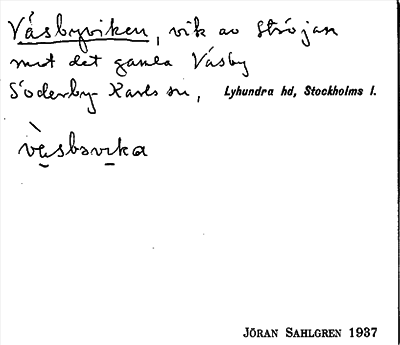 Väsbyviken, vik av Ströjan
mot det gamla Väsby
Söderby-Karls sn, Lyhundra hd, Stockholms l.
vèsbəvika
JÖRAN SAHLGREN 1937